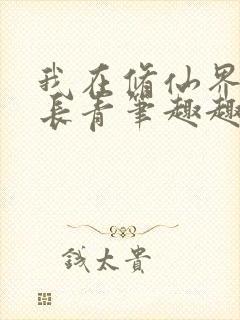 我在修仙界
長青筆趣趣
錢太貴